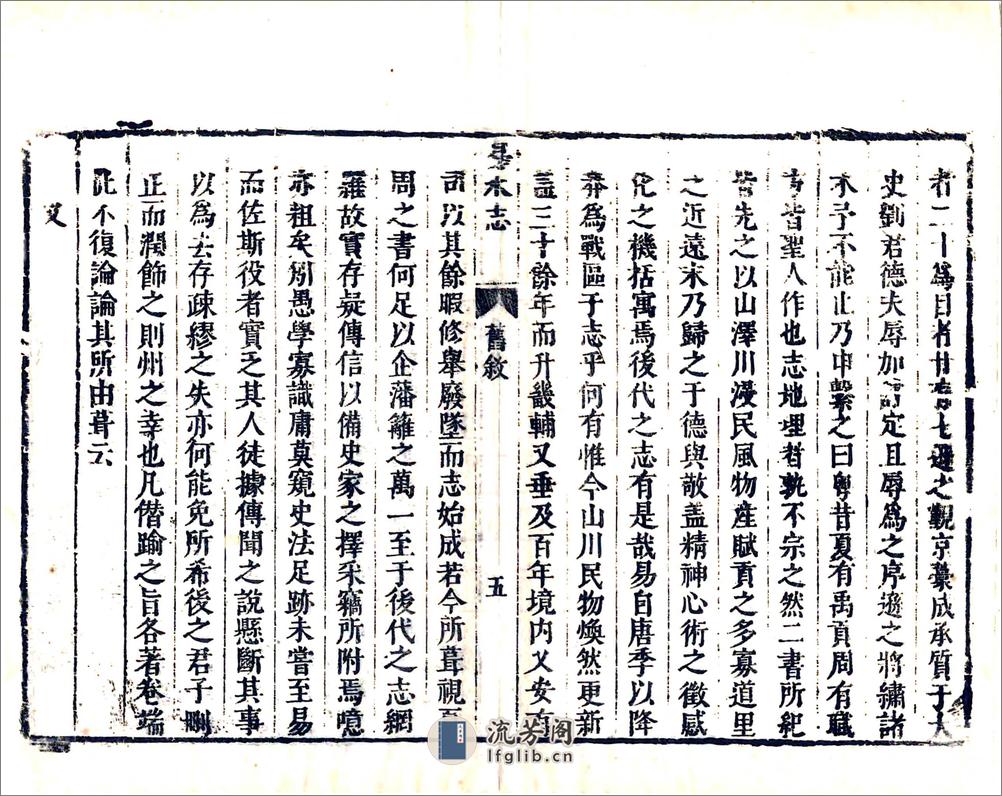 者二十爲目者廿有七遜之觀亰藁成承質于大
史劉君德夫辱加訂定且辱爲之序遜之將繡諸
木予不能止乃申繫之曰粤昔夏有禹貢周有職
方皆聖人作也志地理者孰不宗之然二書所紀
皆先之以山澤川浸民風物產賦貢之多寡道里
之近遠末乃歸之于德與敬盖精神心術之徵感
化之機括寓焉後代之志有是哉易自唐季以降
莽爲戰區于志乎何有惟今山川民物煥然更新
盖三十餘年而升畿輔又垂及百年境内乂安百
易水志
舊敘
五
司以其餘暇修舉廢墜而志始成若今所葺視至
周之書何足以企藩籬之萬一至于後代之志網
羅故實存疑傳信以備史家之擇采竊所附焉噫
亦粗矣矧愚學寡識庸莫窺史法足跡未嘗至易
而佐斯役者實乏其人徒據傳聞之說懸斷其事
以爲去存疎繆之失亦何能免所希後之君子刪
正而潤飾之則州之幸也凡僭踰之旨各著卷端
此不復論論其所由葺云
又
流芳阁
lfglib.cn